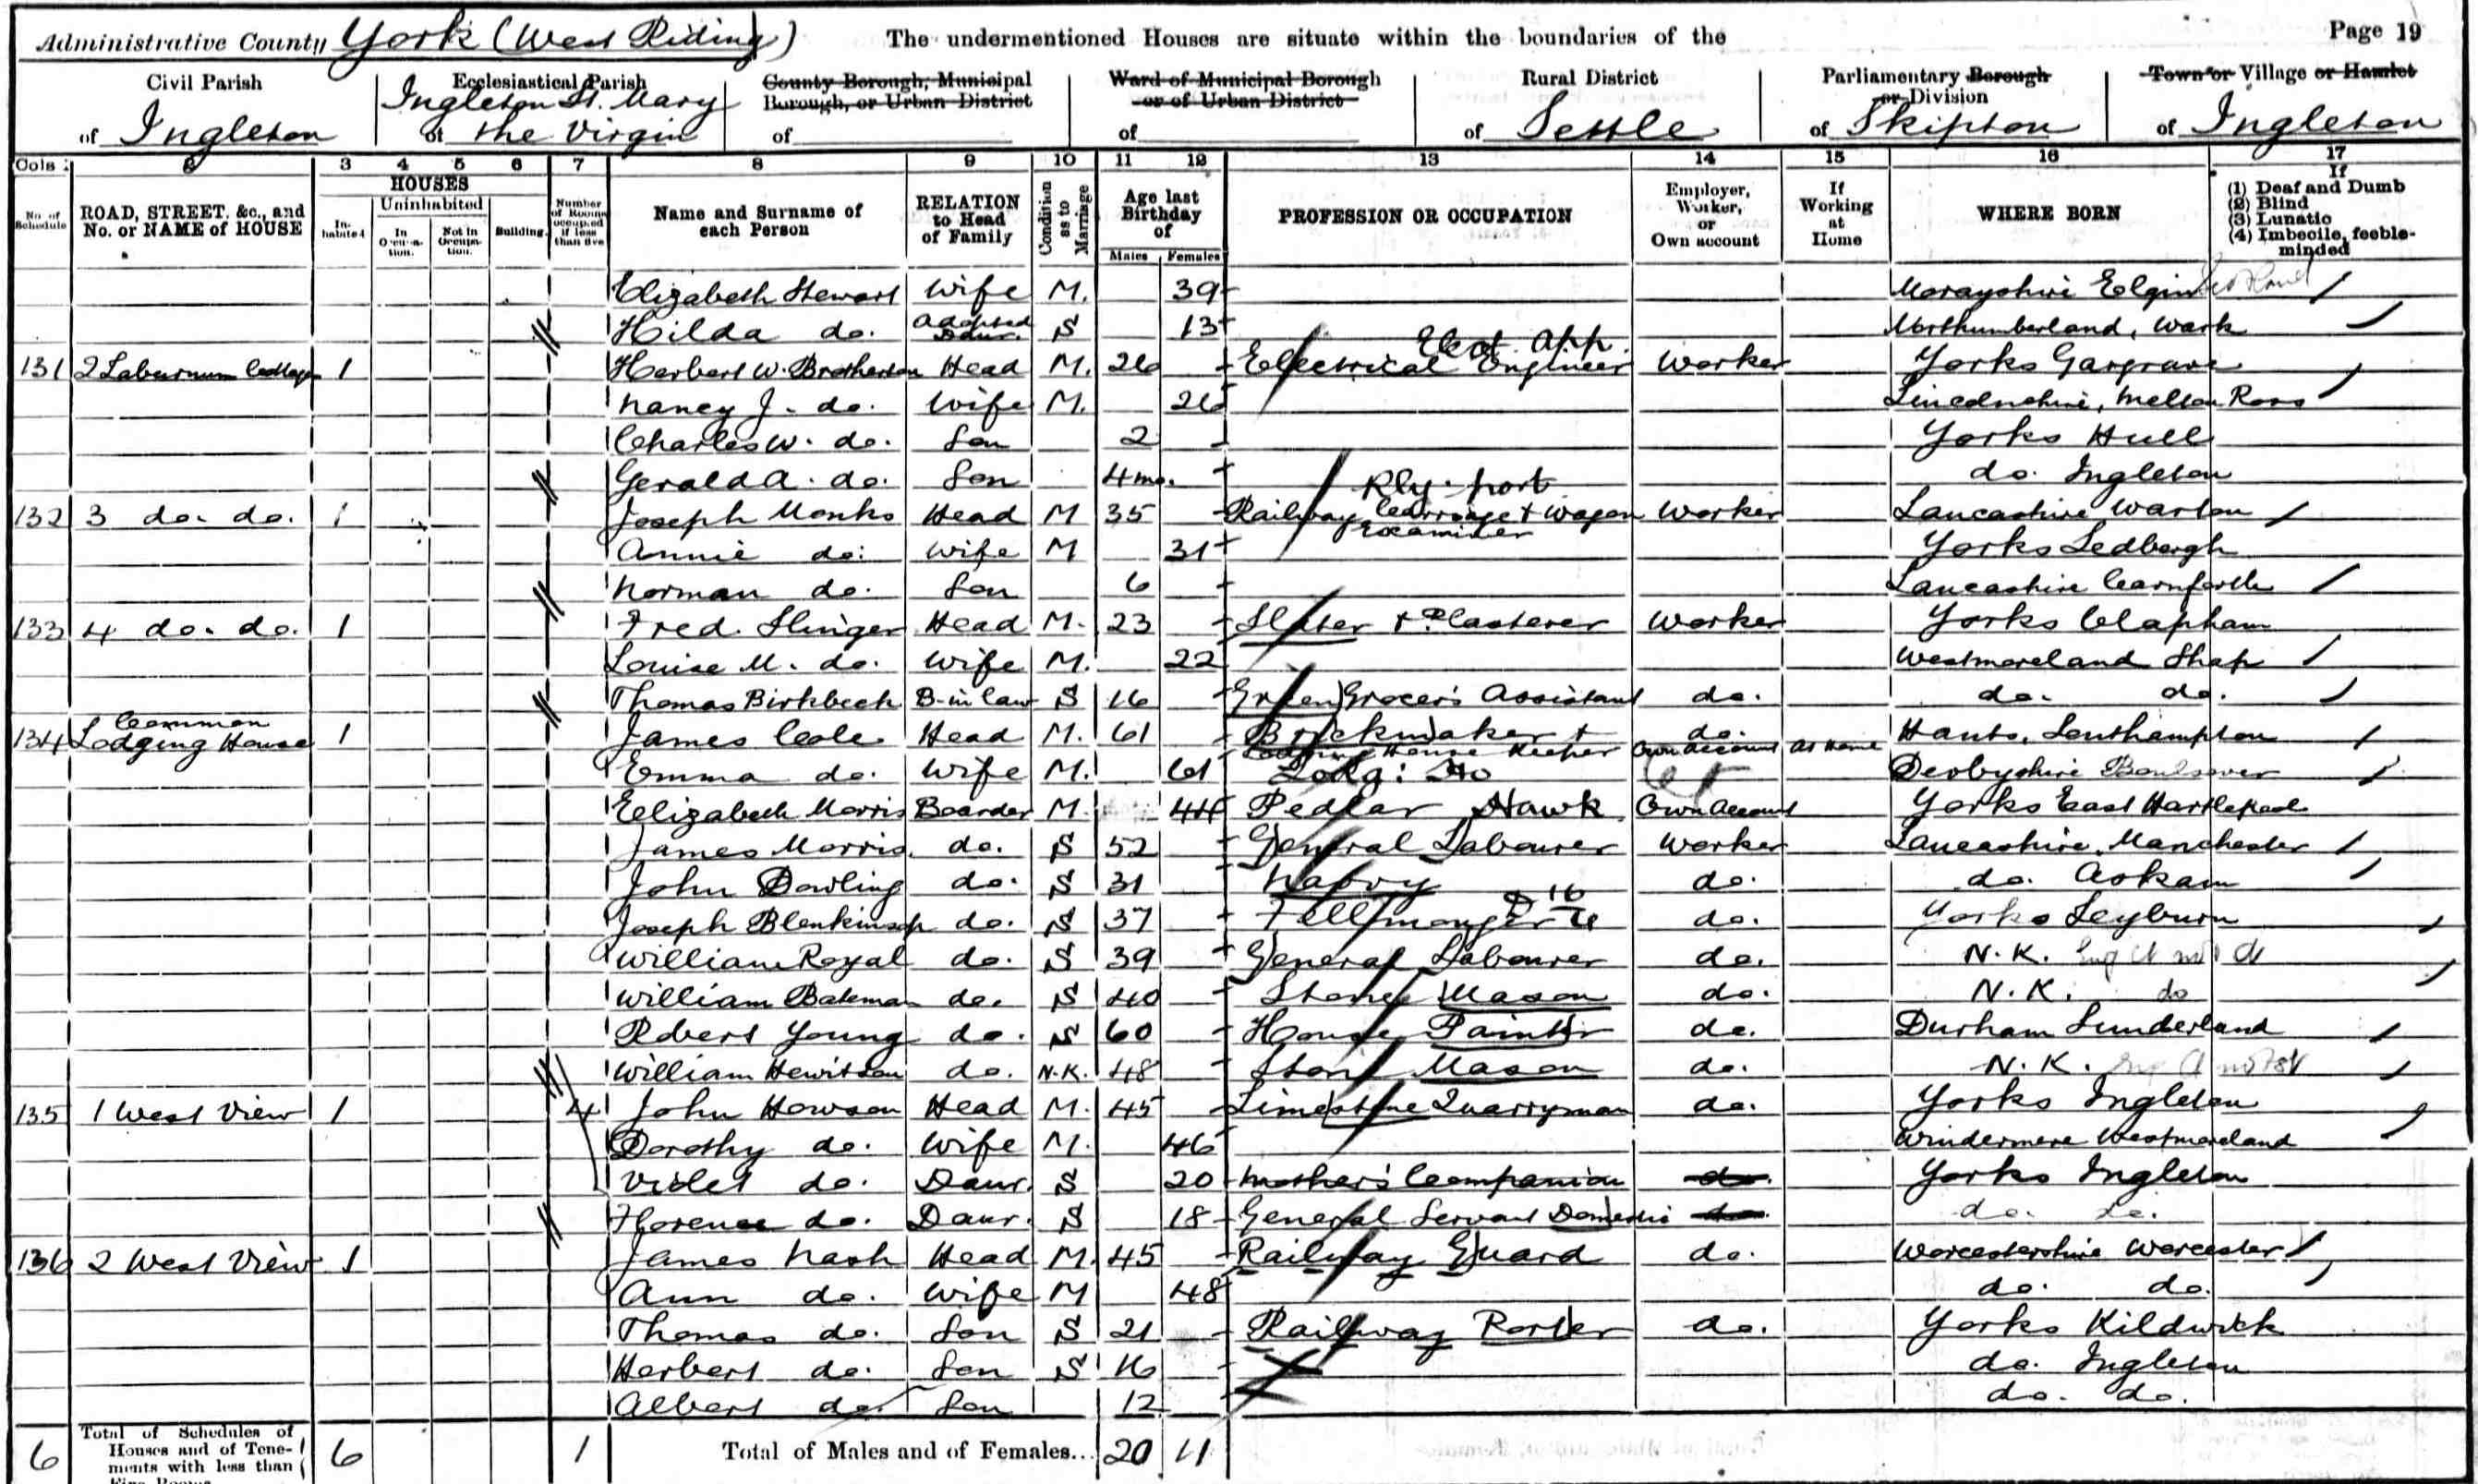 Administrative County York (West Riding) The undermentioned Houses are situate within the boundaries of the Page 19
Civil Parish of Ingleton
Ecclesiastical Parish of Ingleton St. Mary the Virgin
County Borough, Municipal Borough, or Urban District of
Ward of Municipal Borough or of Urban District of
Rural District of Settle
Parliamentary Borough or Division of Skipton
Town or Village or Hamlet of Ingleton
Cols: 2 3 4 5 6 7 8 9 10 11 12 13 14 15 16 17
No. of Schedule
ROAD, STREET, &c., and No. or NAME of HOUSE
HOUSES
Inhabited
Uninhabited
In Occupation.
Not in Occupation.
Building.
Number of Rooms occupied if less than five
Name and Surname of each Person
RELATION to Head of Family
Condition as to Marriage
Age last Birthday of
Males Females
PROFESSION OR OCCUPATION
Employer, Worker, or Own account
If Working at Home
WHERE BORN
If
(1) Deaf and Dumb
(2) Blind
(3) Lunatic
(4) Imbecile, feeble-minded
Elizabeth Stewart Wife M. 39 Morayshire Elgin Scotland
Hilda do. Adopted Daur. S 13 Northumberland, Wark
Elect. App.
131 2 Laburnum Cottages 1 Herbert W. Brotherton Head M. 26 Electrical Engineer Worker Yorks Gargrave
Nancy J. do. Wife M. 26 Lincolnshire, Melton Ross
Charles W. do. Son 2 Yorks Hull
Gerald A. do. Son 4 mo. do. Ingleton
Rly. port
132 3 do. do. 1 Joseph Monks Head M 35 Railway Carriage & Wagon Examiner Worker Lancashire Warton
Annie do. Wife M 31 Yorks Sedbergh
Norman do. Son 6 Lancashire Carnforth
133 4 do. do. 1 Fred. Slinger Head M. 23 Slater & Plasterer Worker Yorks Clapham
Louise M. do. Wife M. 22 Westmoreland Shap
Thomas Birkbeck B-in law S 16 Green Grocer's Assistant do. do. do.
134 Common Lodging House 1 James Cole Head M. 61 Brickmaker & do. Hants, Southampton
Lodging House Keeper Own account At Home
Emma do. Wife M. 61 Lodg: Ho Derbyshire Boulsover
Elizabeth Morris Boarder M. 44 Pedlar Hawk Own Account Yorks East Hartlepool
James Morris do. S 52 General Labourer Worker Lancashire, Manchester
John Dowling do. S 31 Navvy do. do. Askam
Joseph Blenkinsop do. S 37 Fellmonger do. Yorks Leyburn
William Royal do. S 39 General Labourer do. N.K.
William Bateman do. S 40 Stone Mason do. N.K. do
Robert Young do. S 60 House Painter do. Durham Sunderland
William Hewitson do. N.K. 48 Stone Mason do. N.K.
135 1 West View 1 4 John Howson Head M. 45 Limestone Quarryman do. Yorks Ingleton
Dorothy do. Wife M. 46 Windermere Westmoreland
Violet do. Daur. S 20 Mother's Companion do. Yorks Ingleton
Florence do. Daur. S 18 General Servant Domestic do. do. do.
136 2 West View 1 James Nash Head M. 45 Railway Guard do. Worcestershire Worcester
Ann do. Wife M 48 do. do.
Thomas do. Son S 21 Railway Porter do. Yorks Kildwick
Herbert do. Son S 16 do. Ingleton
Albert do. Son 12 do. do.
6 Total of Schedules of Houses and of Tenements with less than 6 1 Total of Males and of Females... 20 11